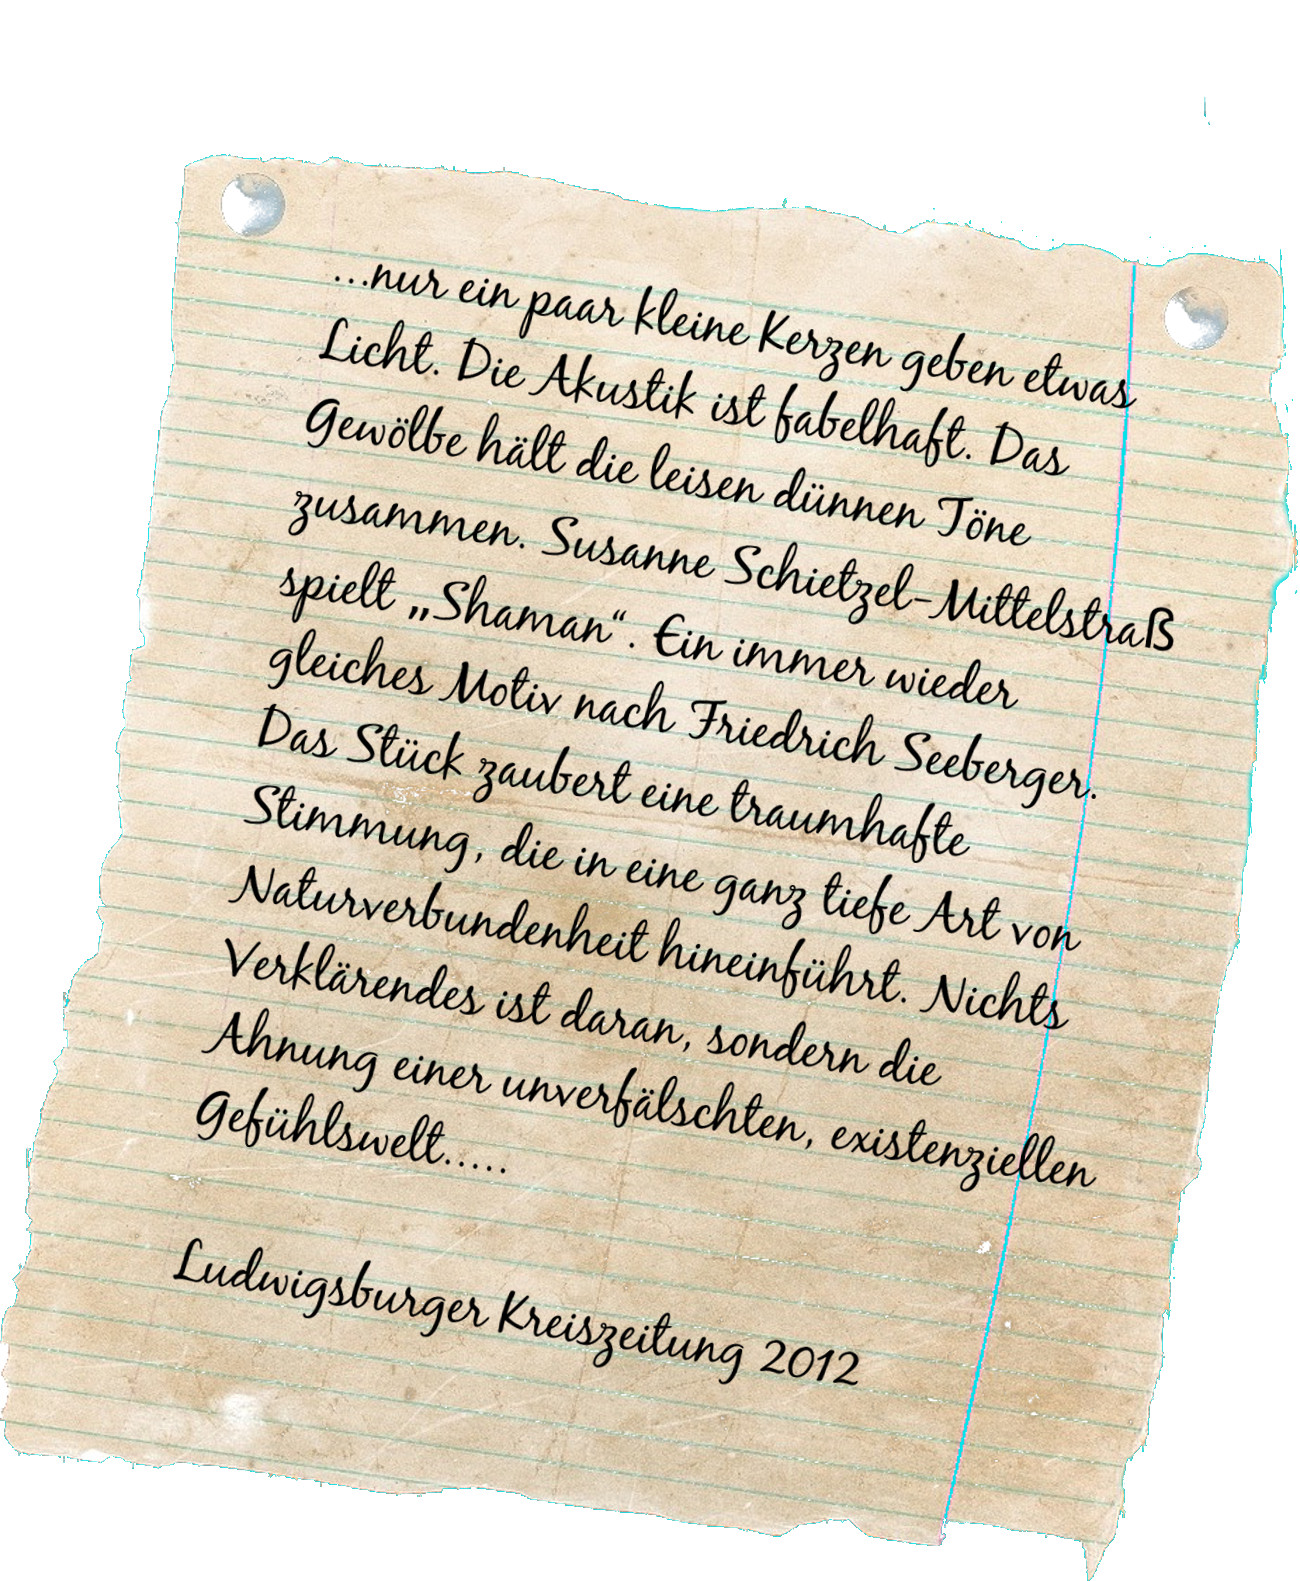 ...nur ein paar kleine Kerzen geben etwas
Licht. Die Akustik ist fabelhaft. Das
Gewölbe hält die leisen dünnen Töne
zusammen. Susanne Schietzel-Mittelstraß
spielt „Shaman“. Ein immer wieder
gleiches Motiv nach Friedrich Seeberger.
Das Stück zaubert eine traumhafte
Stimmung, die in eine ganz tiefe Art von
Naturverbundenheit hineinführt. Nichts
Verklärendes ist daran, sondern die
Ahnung einer unverfälschten, existenziellen
Gefühlswelt.....
Ludwigsburger Kreiszeitung 2012